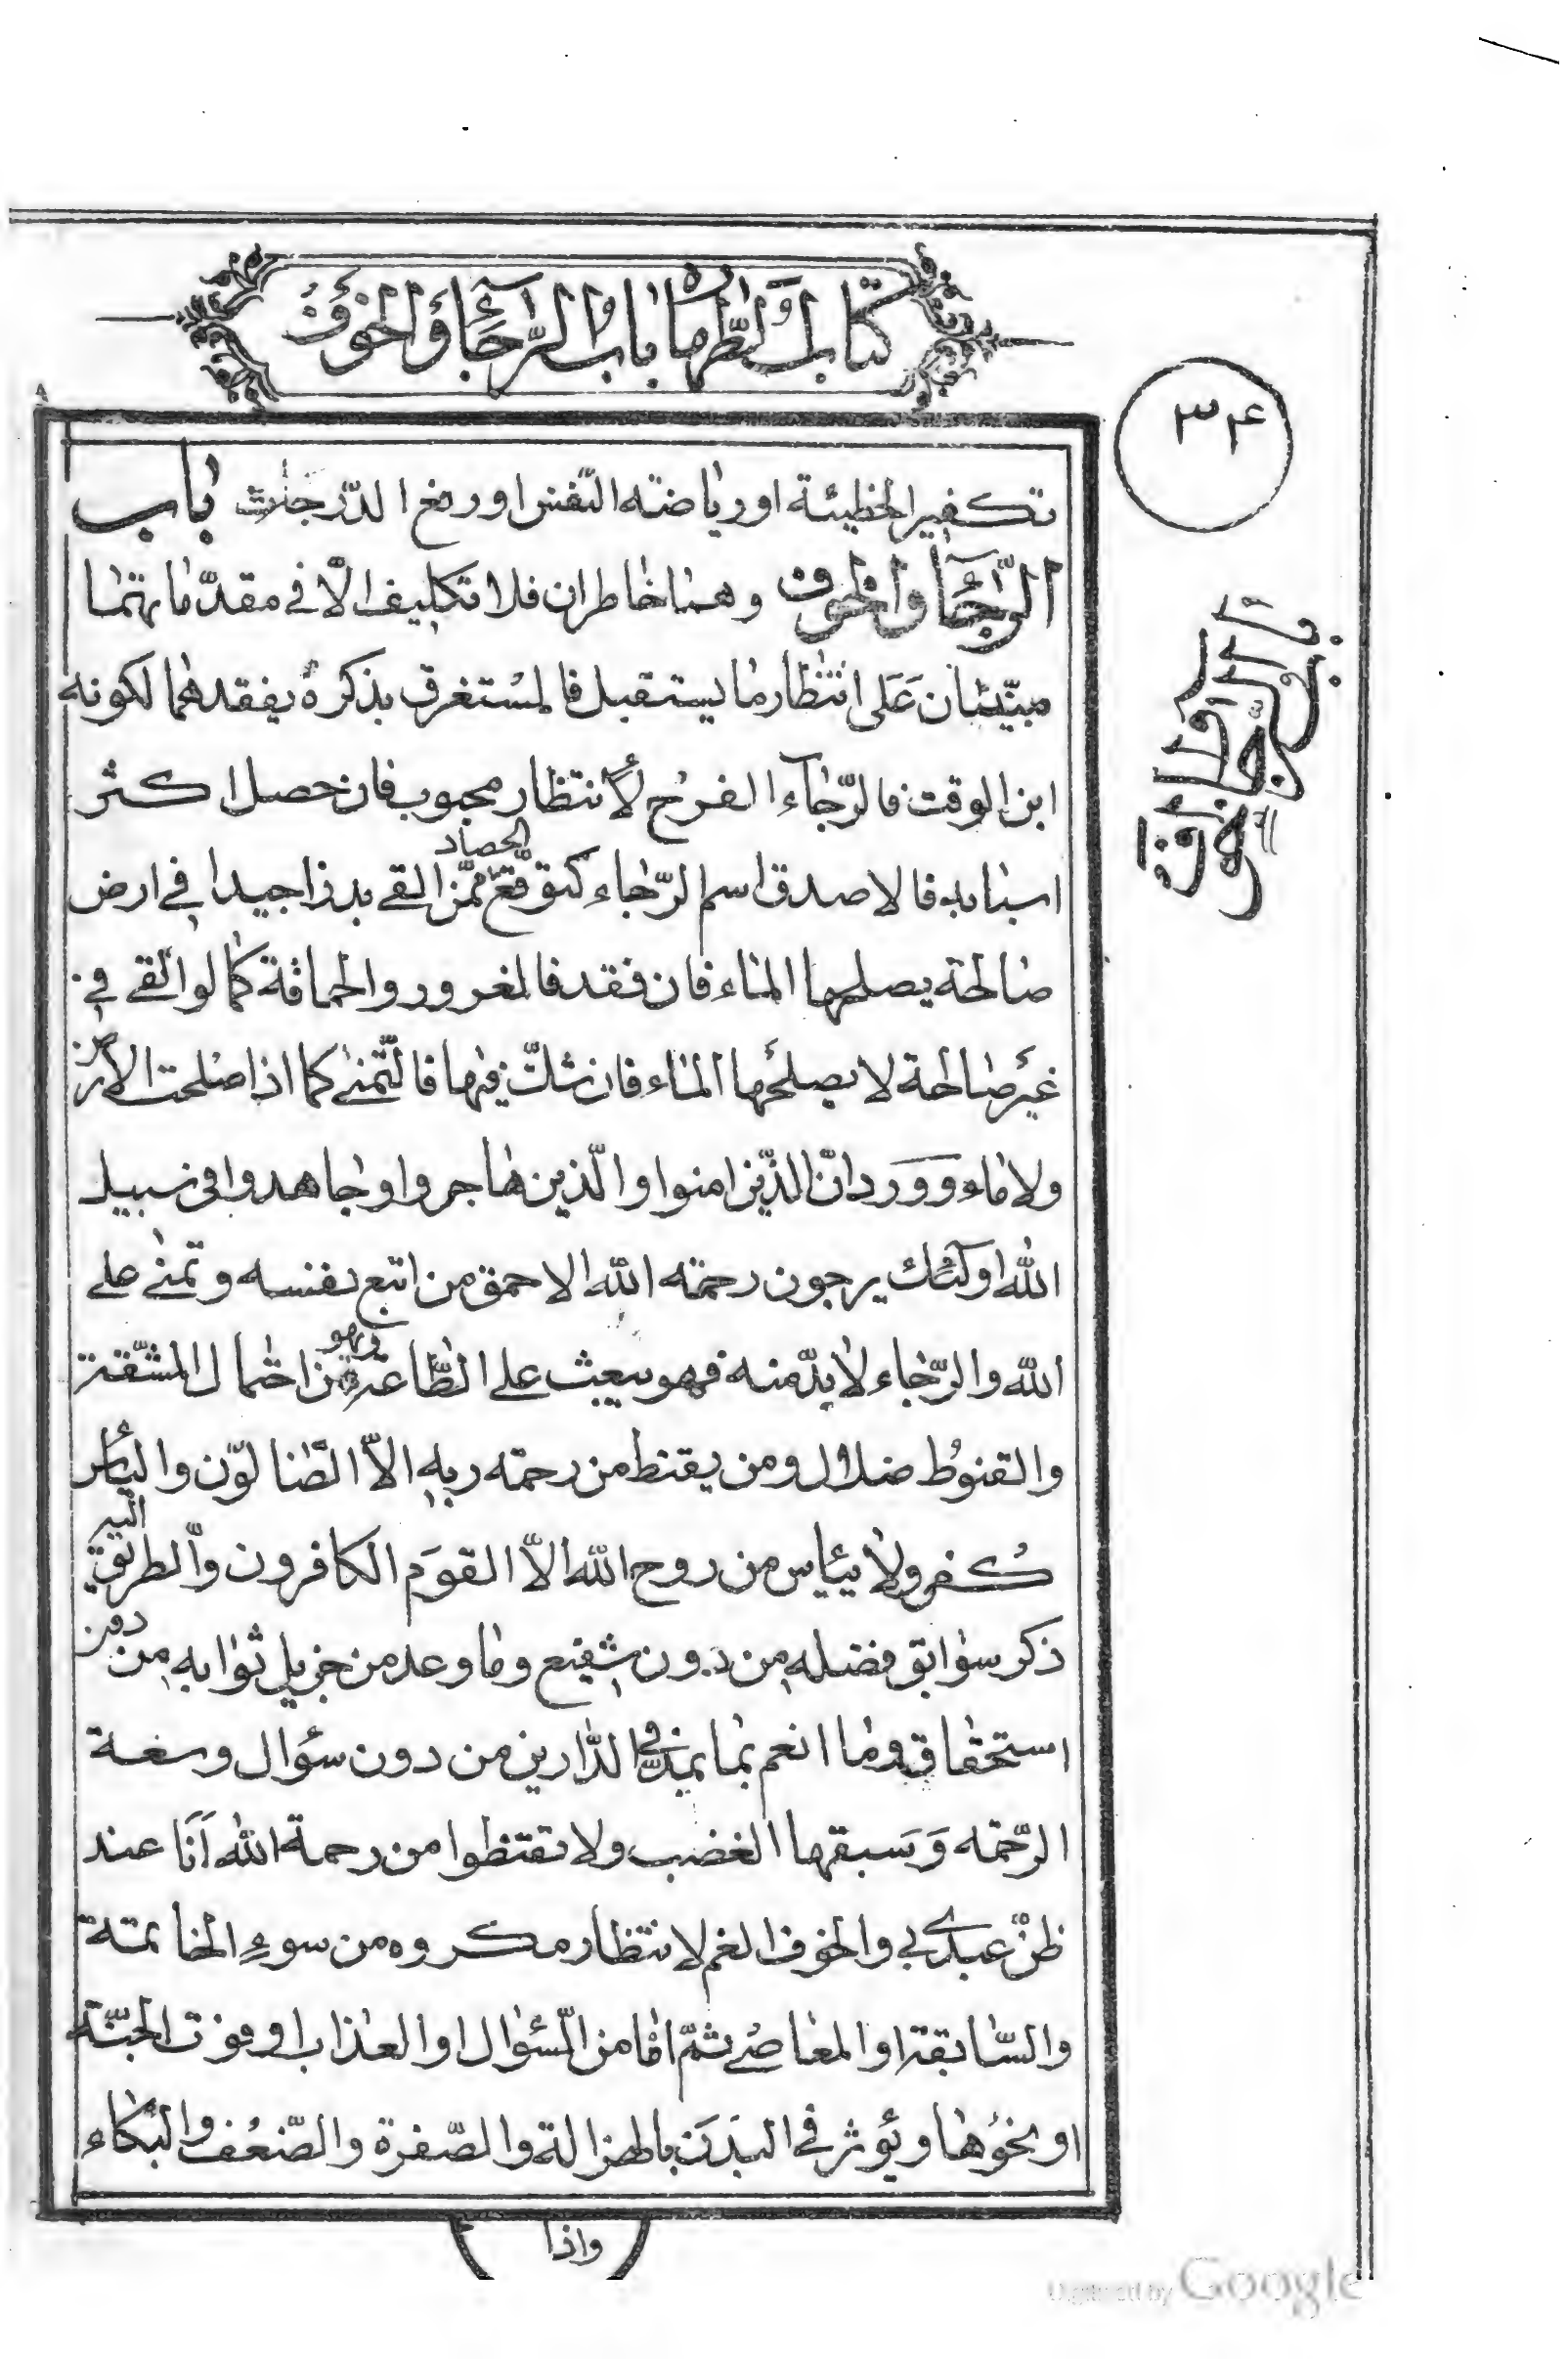 كتاب الطهارة باب الرّجآء والخوف
۳۴
باب الرّجاء والخوف
تكفير الخطيئة او رياضته النّفس او رفع الدّرجات باب
الرَّجَآء والخوف وهما خاطران فلا تكليف الّا فى مقدّماتهما
مبنيّان عَلَى انتظار ما يستقبل فالمُستغرق بذكرهُ يفقدهما لكونه
ابن الوقت فالرّجآء الفرح لأنتظار محبوب فان حصل اكثر
اسبابه فالاصدق اسم الرّجاء كتوقّع الحصاد ممّن القى بذرا جيدا فى ارض
صالحة يصلحها الماء فان فقد فالغرور والحماقة كما لو القى فى
غَير صالحة لا يصلحُها الماء فان شكّ فيها فالتّمنى كما اذا صلحت الارض
ولا ماء وَوَرد انّ الذّين امنوا والّذين هاجروا وجاهدوا فى سبيل
الله اوآئك يرجون رحمته الله الاحمق من اتبع نفسه وتمنى على
الله والرّجاء لا بدّ منه فهو يبعث على الطّاعة ويهون احتمال المشقّة
والقنوُط ضلال ومن يقنط من رحمته ربه الاّ الضّالّون واليأس
كُفر ولا يياس من روح الله الاّ القوَم الكافرون والّطريق اليه
ذكر سوابق فضله من دون شفيع وما وعد من جزيل ثوابه من دون
استحقاق وما انعم بما يمدّ فى الدّارين من دون سؤال وسعة
الرّحمته وَسَبقها الغضب ولا تقنطوا من رحمة الله اَنَا عند
ظنّ عبدى بى والخوف الغم لانتظار مكروه من سوءِ الخاتمة
والسّابقة او المعاصى ثمّ امّا من السّؤال او العذاب او فوت الجنّة
او نحوُها ويؤثر فى البدَن بالهزالة والصّفرة والضّعُف والبُكاء
واذا
Digitized by Google